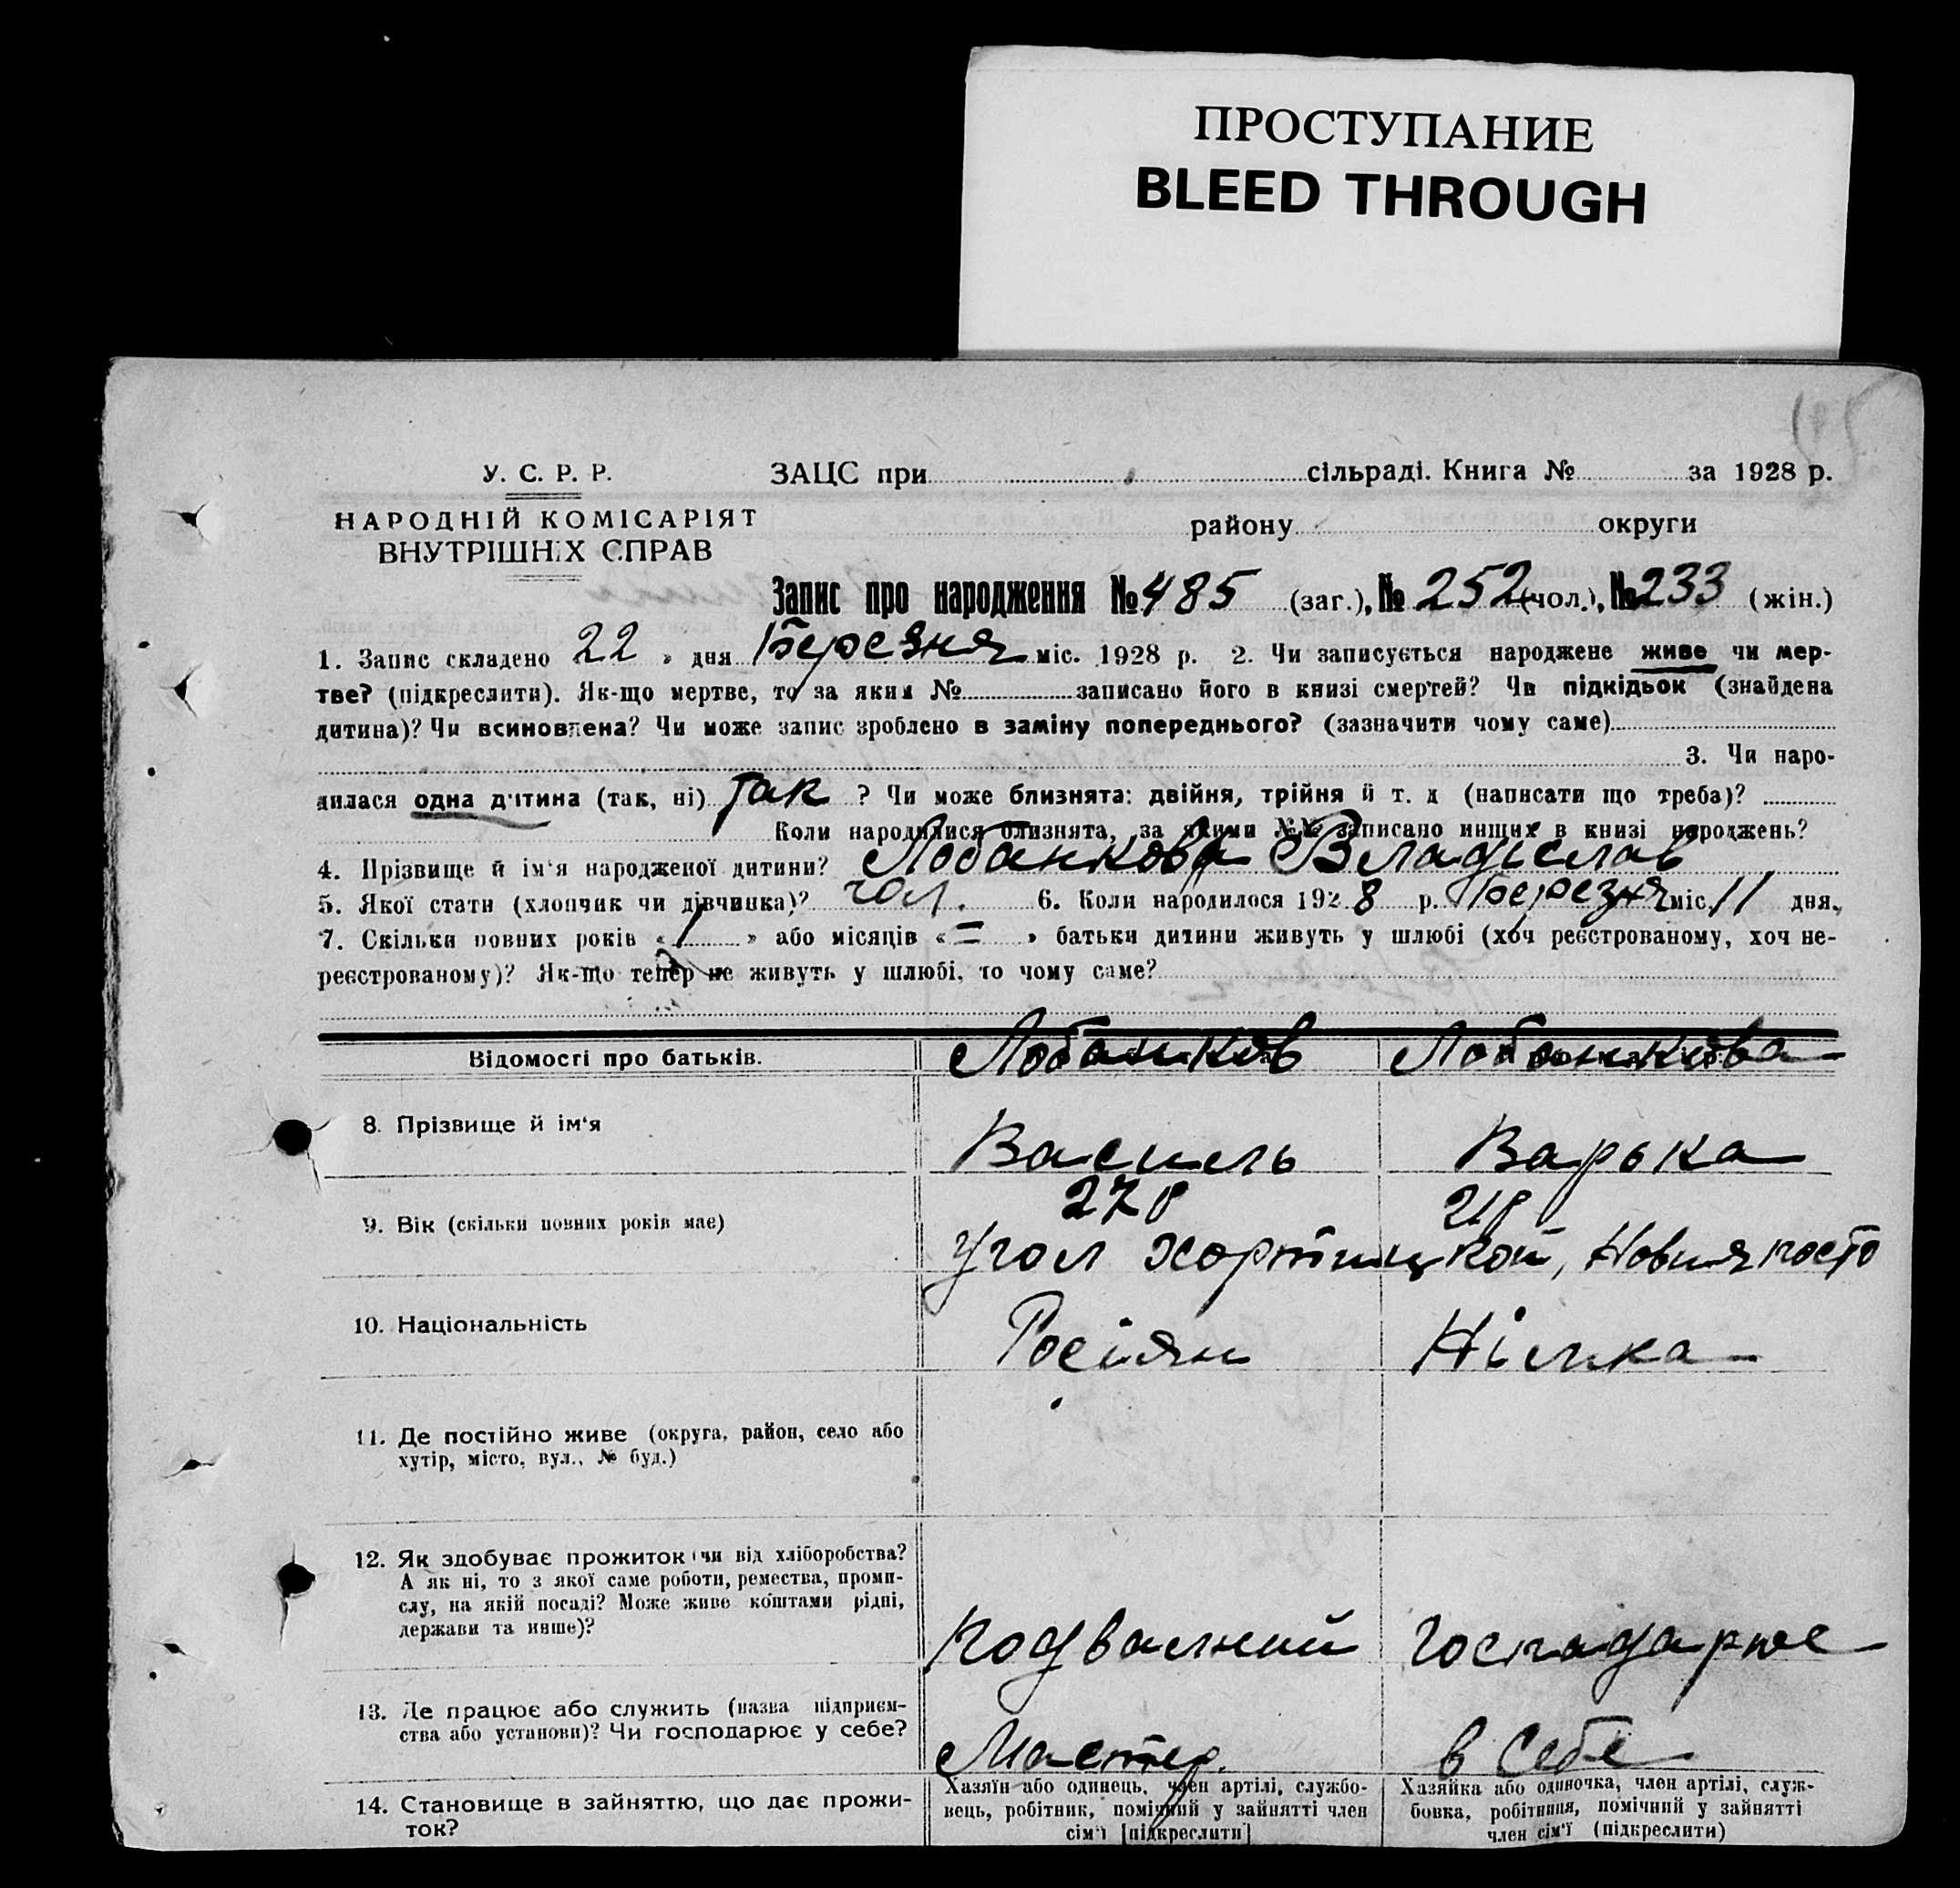 ПРОСТУПАНИЕ
BLEED THROUGH
У. С. Р. Р.
НАРОДНІЙ КОМІСАРІЯТ
ВНУТРІШНІХ СПРАВ
ЗАЦС при сільраді. Книга № за 1928 р.
району округи
Запис про народження № 485 (заг.), № 252 (чол.), № 233 (жін.)
1. Запис складено 22 » дня Березня міс. 1928 р. 2. Чи записується народжене живе чи мер-
тве? (підкреслити). Як-що мертве, то за яким № записано його в книзі смертей? Чи підкідьок (знайдена
дитина)? Чи всиновлена? Чи може запис зроблено в заміну попереднього? (зазначити чому саме)
3. Чи наро-
дилася одна дитина (так, ні) так ? Чи може близнята: двійня, трійня й т. д (написати що треба)?
Коли народилися близнята, за якими №№ записано инших в книзі народжень?
4. Прізвище й ім'я народженої дитини? Лобанкова Владіслав
5. Якої стати (хлопчик чи дівчинка)? чол. 6. Коли народилося 1928 р. Березня міс. 11 дня.
7. Скільки повних років « 1 » або місяців « = » батьки дитини живуть у шлюбі (хоч реєстрованому, хоч не-
реєстрованому)? Як-що тепер не живуть у шлюбі, то чому саме?
Відомості про батьків. Лобанков Лобанкова
8. Прізвище й ім'я Василь Варька
9. Вік (скільки повних років має) 27 р 21 р
Угол Хортицкой,
10. Національність Росіян Німка
11. Де постійно живе (округа, район, село або
хутір, місто, вул., № буд.)
12. Як здобуває прожиток (чи від хліборобства?
А як ні, то з якої саме роботи, ремества, проми-
слу, на якій посаді? Може живе коштами рідні,
держави та инше)?
Подвальний Господарює
13. Де працює або служить (назва підприєм-
ства або установи)? Чи господарює у себе?
Мастер. в себе
14. Становище в зайняттю, що дає прожи-
ток?
Хазяїн або одинець, член артілі, службо-
вець, робітник, помічний у зайнятті член
сім'ї [підкреслити]
Хазяйка або одиночка, член артілі, служ-
бовка, робітниця, помічний у зайнятті
член сім'ї (підкреслити)